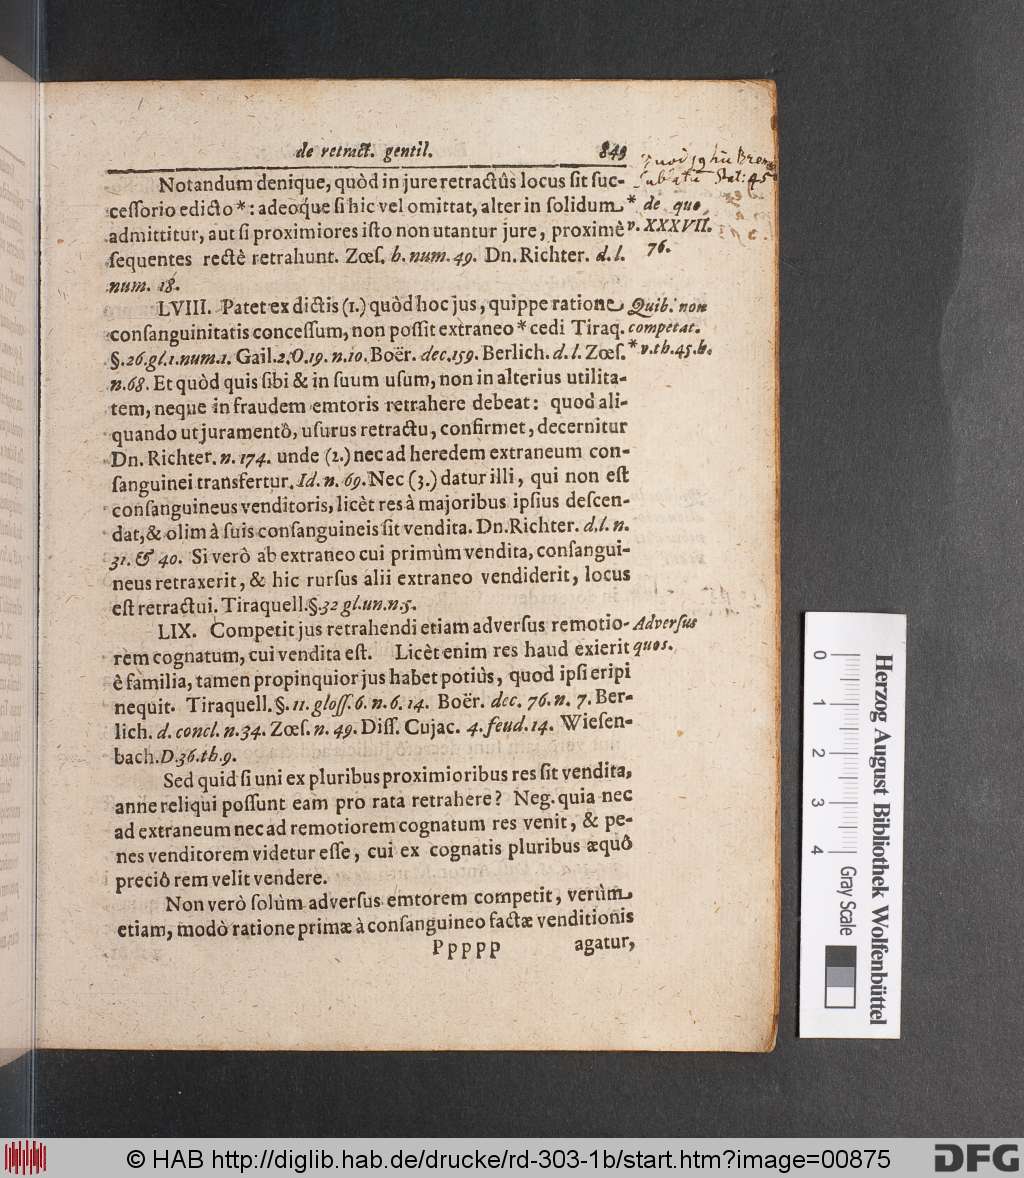 de retract. gentil. 849
Notandum denique, quòd in jure retractûs locus ſit ſuc-
ceſſorio edicto *: adeoque ſi hic vel omittat, alter in ſolidum
admittitur, aut ſi proximiores iſto non utantur jure, proximè
ſequentes rectè retrahunt. Zœſ. h. num. 49. Dn. Richter. d. l.
num. 18.
* de quo
v. XXXVII.
76.
LVIII. Patet ex dictis (1.) quòd hoc jus, quippe ratione
conſanguinitatis conceſſum, non poſſit extraneo * cedi Tiraq.
§. 26. gl. 1. num. 1. Gail. 2. O. 19. n. 10. Boër. dec. 159. Berlich. d. l. Zœſ.
n. 68. Et quòd quis ſibi & in ſuum uſum, non in alterius utilita-
tem, neque in fraudem emtoris retrahere debeat: quod ali-
quando ut juramentô, uſurus retractu, confirmet, decernitur
Dn. Richter. n. 174. unde (2.) nec ad heredem extraneum con-
ſanguinei transfertur. Id. n. 69. Nec (3.) datur illi, qui non eſt
conſanguineus venditoris, licèt res à majoribus ipſius deſcen-
dat, & olim à ſuis conſanguineis ſit vendita. Dn. Richter. d. l. n.
31. & 40. Si verò ab extraneo cui primùm vendita, conſangui-
neus retraxerit, & hic rurſus alii extraneo vendiderit, locus
eſt retractui. Tiraquell. §. 32 gl. un. n. 5.
Quib. non
competat.
* v. th. 45. h.
LIX. Competit jus retrahendi etiam adverſus remotio-
rem cognatum, cui vendita eſt. Licèt enim res haud exierit
è familia, tamen propinquior jus habet potiùs, quod ipſi eripi
nequit. Tiraquell. §. 11. gloſſ. 6. n. 6. 14. Boër. dec. 76. n. 7. Ber-
lich. d. concl. n. 34. Zœſ. n. 49. Diſſ. Cujac. 4. feud. 14. Wieſen-
bach. D. 36. th. 9.
Adverſus
quos.
Sed quid ſi uni ex pluribus proximioribus res ſit vendita,
anne reliqui poſſunt eam pro rata retrahere? Neg. quia nec
ad extraneum nec ad remotiorem cognatum res venit, & pe-
nes venditorem videtur eſſe, cui ex cognatis pluribus æquô
preciô rem velit vendere.
Non verò ſolùm adverſus emtorem competit, verùm
etiam, modò ratione primæ à conſanguineo factæ venditionis
Ppppp agatur,
0 1 2 3 4
Gray Scale
Herzog August Bibliothek Wolfenbüttel
© HAB http://diglib.hab.de/drucke/rd-303-1b/start.htm?image=00875
DFG